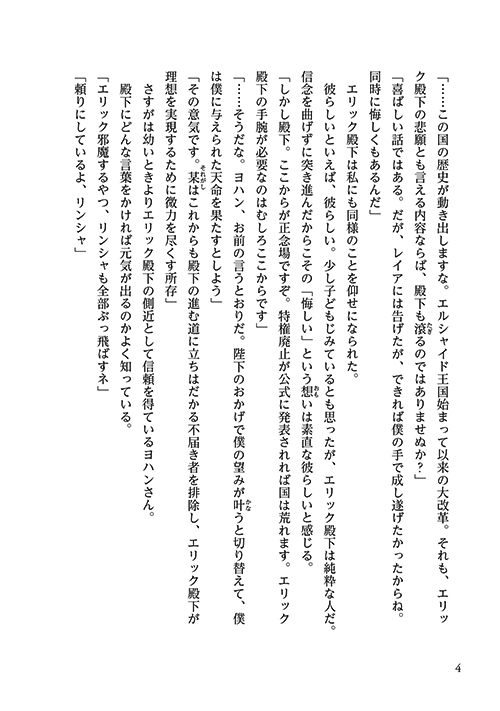 「……この国の歴史が動き出しますな。エルシャイド王国始まって以来の大改革。それも、エリッ
ク殿下の悲願とも言える内容ならば、殿下も滾るのではありませぬか？」
「喜ばしい話ではある。だが、レイアには告げたが、できれば僕の手で成し遂げたかったからね。
同時に悔しくもあるんだ」
　エリック殿下は私にも同様のことを仰せになられた。
　彼らしいといえば、彼らしい。少し子どもじみているとも思ったが、エリック殿下は純粋な人だ。
信念を曲げずに突き進んだからこその「悔しい」という想いは素直な彼らしいと感じる。
「しかし殿下。ここからが正念場ですぞ。特権廃止が公式に発表されれば国は荒れます。エリック
殿下の手腕が必要なのはむしろここからです」
「……そうだな。ヨハン、お前の言うとおりだ。陛下のおかげで僕の望みが叶うと切り替えて、僕
は僕に与えられた天命を果たすとしよう」
「その意気です。某はこれからも殿下の進む道に立ちはだかる不届き者を排除し、エリック殿下が
理想を実現するために微力を尽くす所存」
　さすがは幼いときよりエリック殿下の側近として信頼を得ているヨハンさん。
　殿下にどんな言葉をかければ元気が出るのかよく知っている。
「エリック邪魔するやつ、リンシャも全部ぶっ飛ばすネ」
「頼りにしているよ、リンシャ」
4